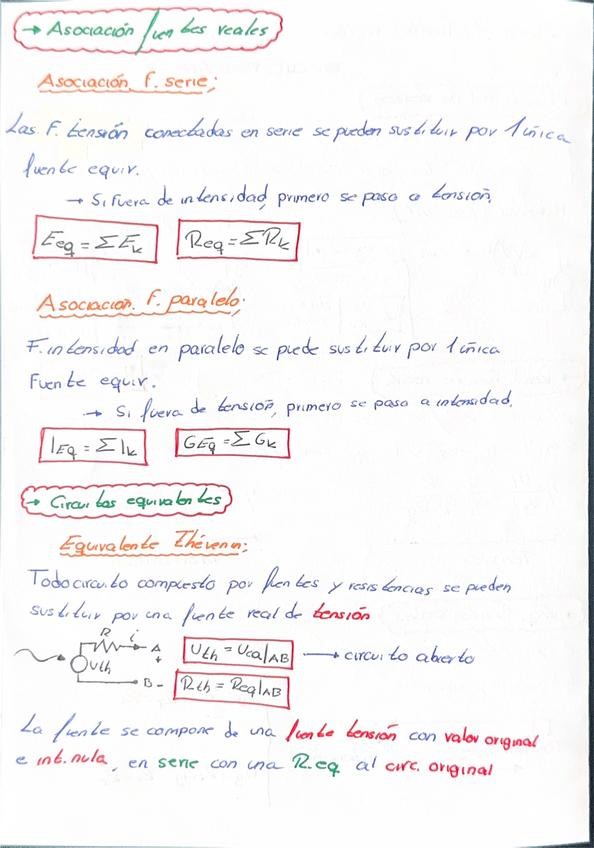 → Asociación fuentes reales
Asociación F. serie;
Las F. tensión conectadas en serie se pueden sustituir por 1 única
fuente equir.
→ Si fuera de intensidad, primero se pasa a tensión.
Eeq = ΣEk Req = ΣRk
Asociación F. paralelo;
F. intensidad en paralelo se puede sustituir por 1 única
Fuente equir.
→ Si fuera de tensión, primero se pasa a intensidad.
IEq = ΣIk GEq = ΣGk
→ Circuitos equivalentes
Equivalente Thévenin;
Todo circuito compuesto por fuentes y resistencias se pueden
sustituir por una fuente real de tensión
R i A +
Uth
B -
Uth = Uca|AB → circuito abierto
Rth = Req|AB
La fuente se compone de una fuente tensión con valor original
e int. nula, en serie con una R.eq al circ. original